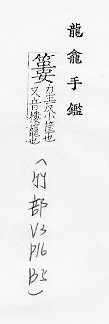 龍龕手鑑
力主反小筐也
又音 籠也
(竹部
V3
P16
B5)